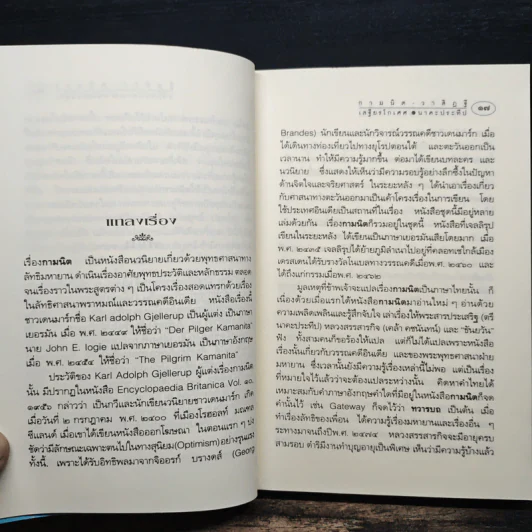 แถลงเรื่อง
เรื่องกามนิต เป็นหนังสือนวนิยายเกี่ยวด้วยพุทธศาสนาทาง
ลัทธิมหายาน ดำเนินเรื่องอาศัยพุทธประวัติและหลักธรรม ตลอด
จนเรื่องราวในพระสูตรต่าง ๆ เป็นโครงเรื่องสอดแทรกด้วยเรื่อง
ในลัทธิศาสนาพราหมณ์และวรรณคดีอินเดีย หนังสือเรื่องนี้
ชาวเดนมาร์กชื่อ Karl adolph Gjellerup เป็นผู้แต่ง เป็นภาษา
เยอรมัน เมื่อ พ.ศ. ๒๔๔๙ ให้ชื่อว่า "Der Pilger Kamanita"
นาย John E. logie แปลจากภาษาเยอรมัน เป็นภาษาอังกฤษ
เมื่อ พ.ศ. ๒๔๕๔ ให้ชื่อว่า "The Pilgrim Kamanita"
ประวัติของ Karl Adolph Gjellerup ผู้แต่งเรื่องกามนิต
นั้น มีปรากฏในหนังสือ Encyclopaedia Britanica Vol. ๑๐,
๑๙๕๖ กล่าวว่า เป็นกวีและนักเขียนนวนิยายชาวเดนมาร์ก เกิด
เมื่อวันที่ ๒ กรกฎาคม พ.ศ. ๒๔๐๐ ที่เมืองโรฮอลท์ มณฑล
ซีแลนด์ เมื่อเขาได้เขียนหนังสือออกโฆษณา ในตอนแรก ๆ
ชัดว่ามีลักษณะเฉพาะตนไปในทางสุนิยม(Optimism)อย่างรุนแรง
ทั้งนี้ เพราะได้รับอิทธิพลมาจากจิออรก์ บรานดส์ (Georg
กามนิต-วาสิฏฐี
เสฐียรโกเศศ ● นาคะประทีป
๑๗
Brandes) นักเขียนและนักวิจารณ์วรรณคดีชาวเดนมาร์ก เมื่อ
ได้เดินทางท่องเที่ยวไปทางยุโรปตอนใต้ และตะวันออกเป็น
เวลานาน ทำให้มีความรู้มากขึ้น ต่อมาได้เขียนบทละคร และ
นวนิยาย ซึ่งแสดงให้เห็นว่ามีความรอบรู้อย่างลึกซึ้งในปัญหา
ด้านจิตใจและจริยศาสตร์ ในระยะหลัง ๆ ได้นำเอาเรื่องเกี่ยว
กับศาสนาทางตะวันออกมาเป็นเค้าโครงเรื่องในการเขียน โดย
ใช้ประเทศอินเดียเป็นสถานที่ในเรื่อง หนังสือชุดนี้มีอยู่หลาย
เล่มด้วยกัน เรื่องกามนิตก็รวมอยู่ในชุดนี้ หนังสือที่เจลลิรุป
เขียนในระยะหลัง ได้เขียนเป็นภาษาเยอรมันเสียโดยมาก เมื่อ
พ.ศ. ๒๔๓๕ เจลลิรุปได้ย้ายภูมิลำเนาไปอยู่ที่คลอทเช่ใกล้เมือง
เดรสเดนได้รับรางวัลโนเบลทางวรรณคดีเมื่อพ.ศ. ๒๔๖๐ และ
ได้ถึงแก่กรรมเมื่อพ.ศ. ๒๔๖๒
มูลเหตุที่ข้าพเจ้าจะแปลเรื่องกามนิตเป็นภาษาไทยนั้น ก็
เนื่องด้วยเมื่อแรกได้หนังสือกามนิตมาอ่านใหม่ ๆ อ่านด้วย
ความเพลิดเพลินและรู้สึกจับใจ เล่าเรื่องให้พระสารประเสริฐ (ตรี
นาคะประทีป) หลวงสรรสารกิจ (เคล้า คชนันทน์) และ "ชันยวัน"
ฟัง ทั้งสามคนก็ขอร้องให้แปล แต่ก็ไม่ได้แปลเพราะหนังสือ
เรื่องนั้นเกี่ยวกับวรรณคดีอินเดีย และของพระพุทธศาสนาฝ่าย
มหายาน ซึ่งเวลานั้นยังมีความรู้เรื่องเหล่านี้ไม่พอ แต่เป็นเรื่อง
ที่หมายใจไว้แล้วว่าจะต้องแปลระหว่างนั้น คิดหาคำไทยได้
เหมาะสมกับคำภาษาอังกฤษคำใดที่มีอยู่ในหนังสือกามนิตก็จด
คำนั้นไว้ เช่น Gateway ก็จดไว้ว่า ทวารบถ เป็นต้น เมื่อ
ทำเรื่องลัทธิของเพื่อน ได้ความรู้เรื่องมหายานและเรื่องอื่น ๆ
ระทางมาจนถึงปีพ.ศ. ๒๔๗๔ หลวงสรรสารกิจจะมีอายุครบ
สามรอบ ดำริมีงานทำบุญอายุเป็นพิเศษ เห็นว่ามีความรู้บ้างแล้ว